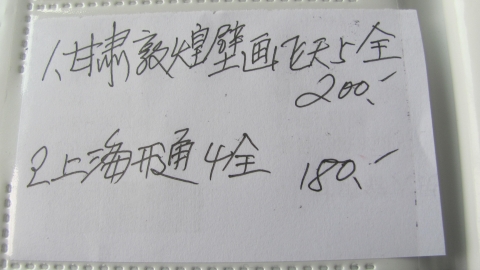 1、甘肃敦煌壁画,飞天5全
200.-
2上海形通4全 180.-